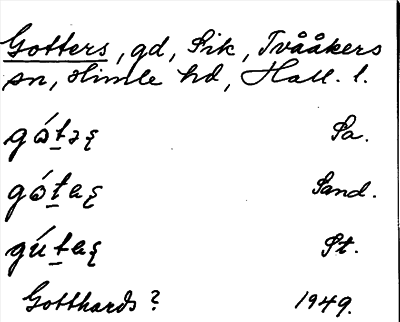 Gotters, gd, Sik, Tvååkers
sn, Himle hd, Hall. l.
gót̲əʂ Sa.
gót̲aʂ Sand.
gút̲aʂ St.
Gotthards? 1949.